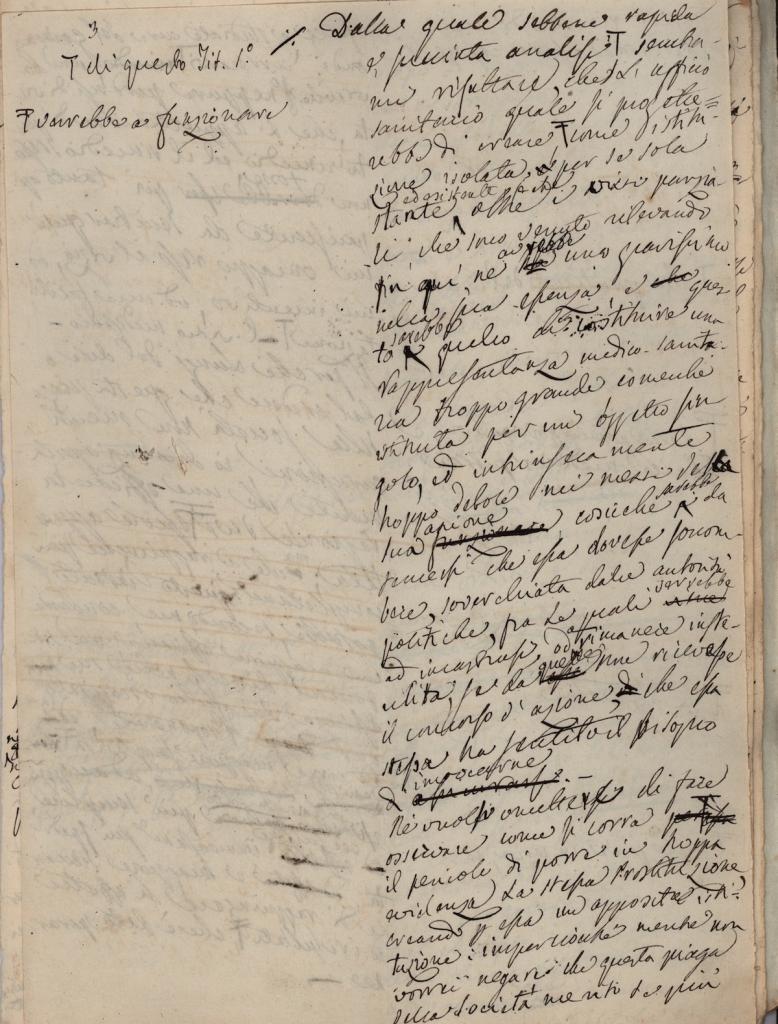 3
T di questo Tit. 1.°
Ŧ verrebbe a funzionare
./. Dalla quale sebbene rapida
e succinta analisi T sembra-
mi risultare, che l'ufficio
sanitario quale si proget-
rebbe di creare Ŧ come istitu-
zione isolata, e per se sola
stante, ed esistente oltre i vizi parzia-
li che sono venuto rilevando
fin qui ne avrebbe uno gravissimo
nella sua essenza e che ques-
to sarebbe quello di costituire una
rappresentanza medico-sanita-
ria troppo grande comechè
istituita per un oggetto sin
golo, ed intrinsecamente
troppo debole nei mezzi della
sua azione, cosicchè sarebbe da
temersi che essa dovesse soccom-
bere, soverchiata dalle autorità
politiche, fra le quali verrebbe
ad incastrarsi, od rimanere inste-
rilita, se da quelle non ricevesse
il concorso d'azione, di che essa
stessa ha sentito il bisogno
d'invocarne. —
Nè vuolsi omettere di fare
osservare come si corra
il pericolo di porre in troppa
evidenza la stessa Prostituzione,
creando per essa un'apposita isti-
tuzione: imperciocchè mentre non
vorrei negare che questa piaga
della Società meriti le più